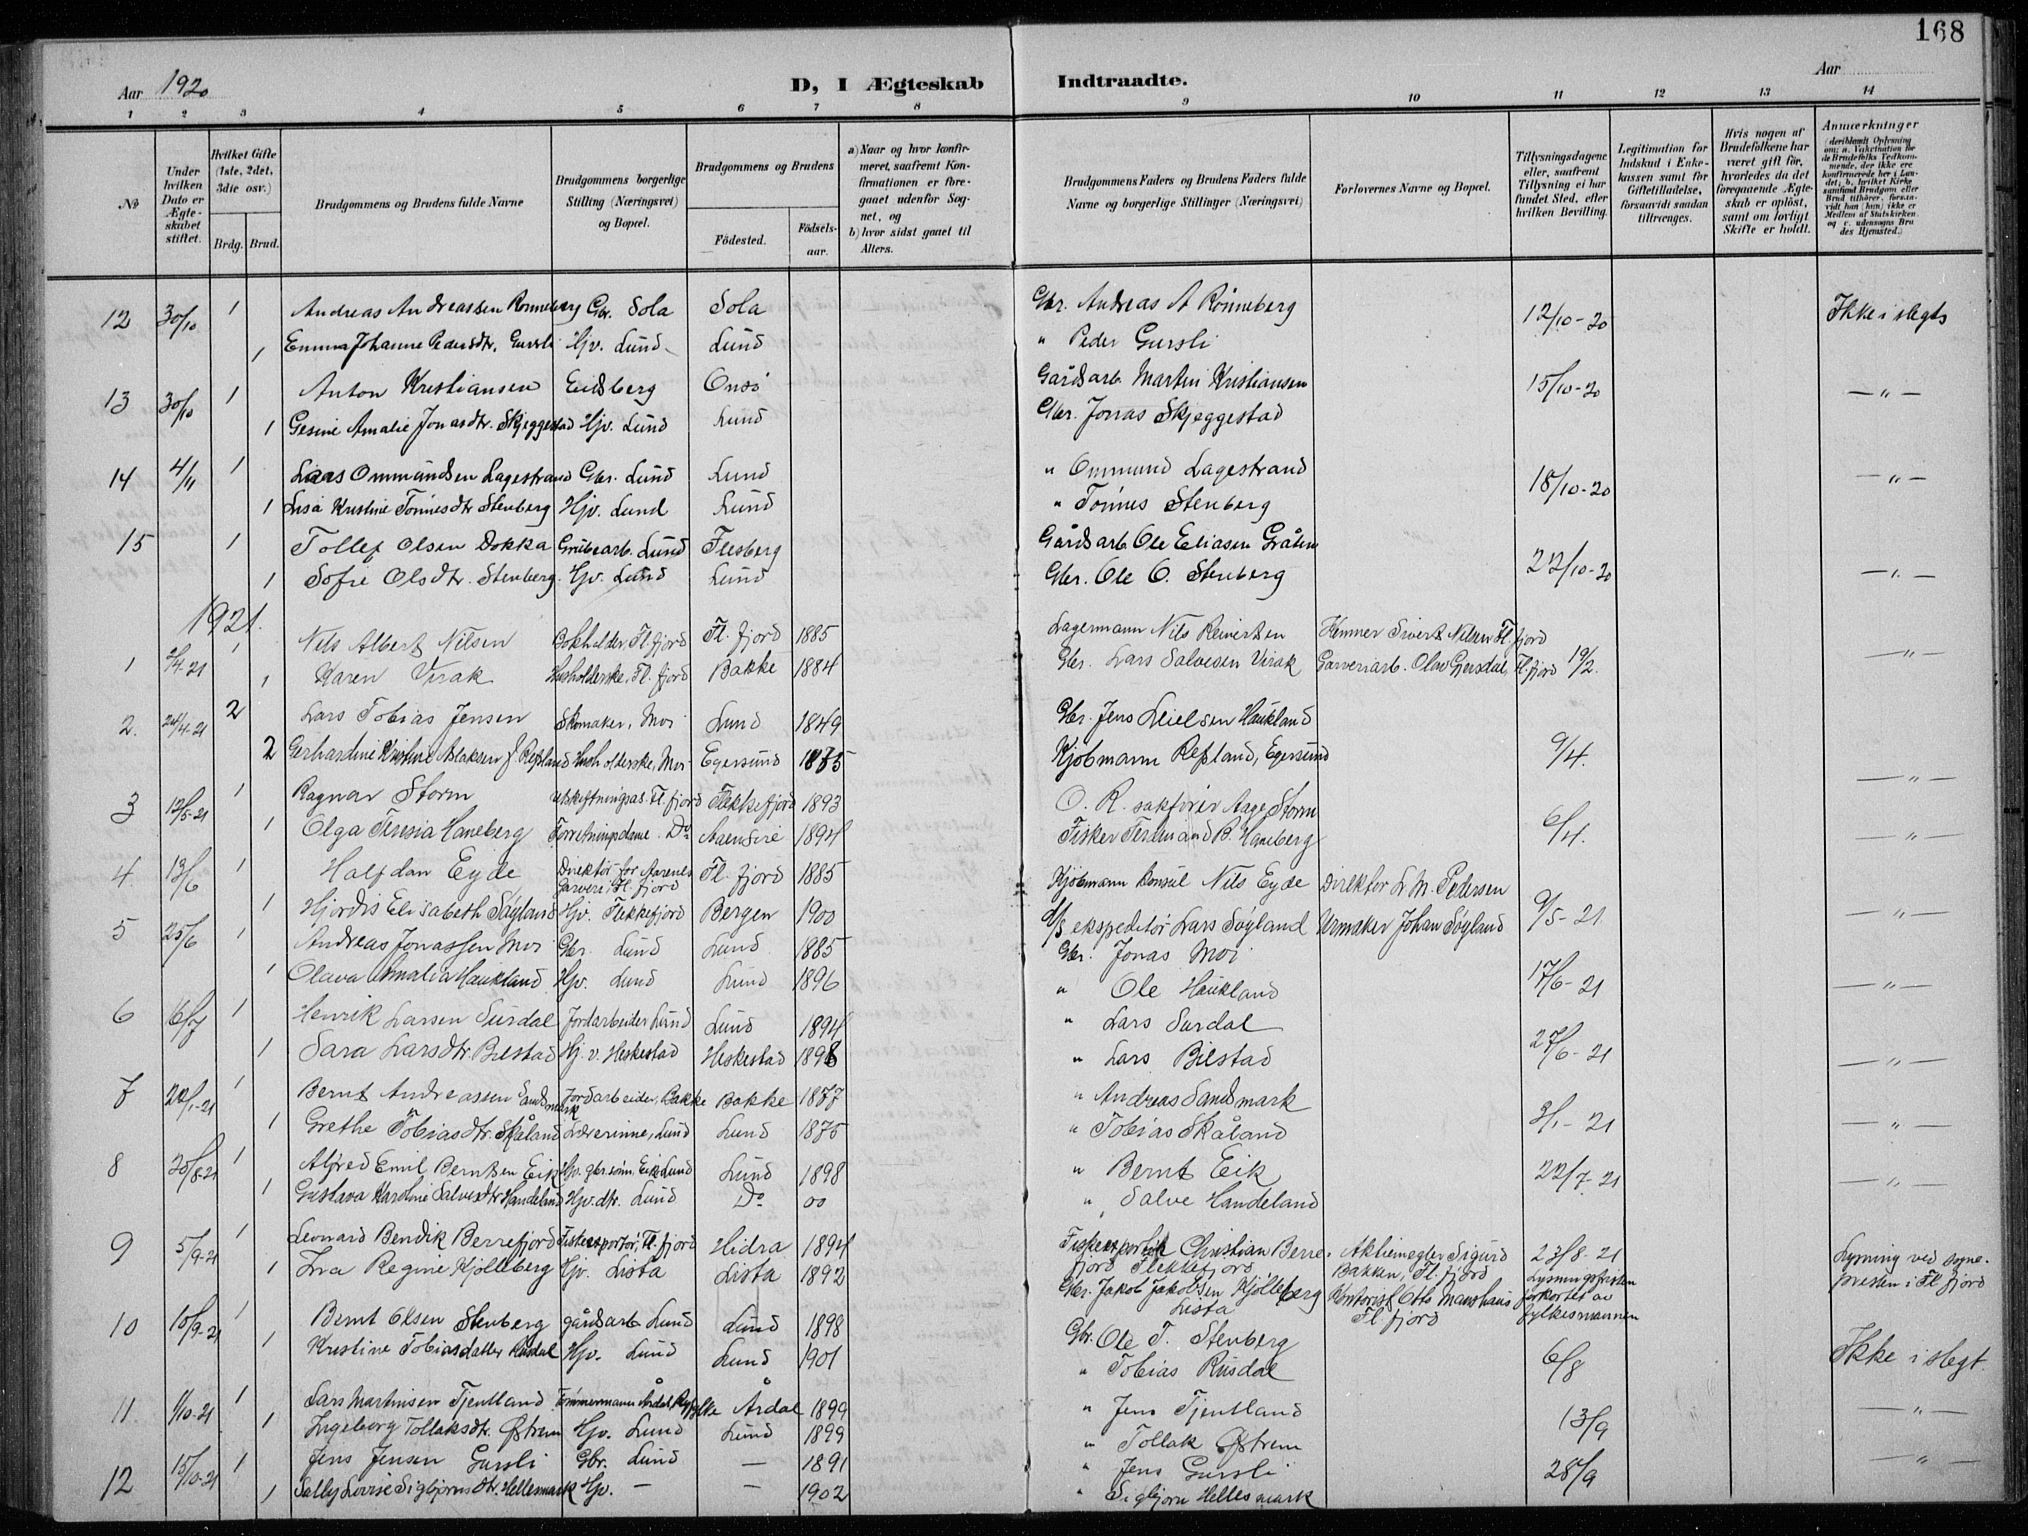 168
Aar 1920
D, I Ægteskab Indtraadte.
Aar
1 2 3 4 5 6 7 8 9 10 11 12 13 14
No
Under hvilken Dato er Ægteskabet stiftet.
Hvilket Gifte (1ste, 2det, 3die osv.)
Brdg. Brud.
Brudgommens og Brudens fulde Navne
Brudgommens borgerlige Stilling (Næringsvei) og Bopæl.
Brudgommens og Brudens
Födested. Födsels-aar.
a) Naar og hvor konfirmeret, saafremt Konfirmationen er foregaaet udenfor Sognet, og
b) hvor sidst gaaet til Alters.
Brudgommens Faders og Brudens Faders fulde Navne og borgerlige Stillinger (Næringsvei)
Forlovernes Navne og Bopæl.
Tillysningsdagene eller, saafremt Tillysning ei har fundet Sted, efter hvilken Bevilling.
Legitimation for Indskud i Enkekassen samt for Giftetilladelse, forsaavidt saadan tiltrænges.
Hvis nogen af Brudefolkene har været gift för, hvorledes da det foregaaende Ægteskab er oplöst, samt om lovligt Skifte er holdt.
Anmærkninger
12 30/10 1 Andreas Andreassen Rönneberg Gbr. Sola Sola Gbr. Andreas A Rönneberg 12/10-20 Ikke i slegt
1 Emma Johanne Pedersdtr. Gursli Hjv. Lund Lund " Peder Gursli
13 30/10 1 Anton Kristiansen Eidsberg Onsö Gårdsarb. Martin Kristiansen 15/10-20 —"—
1 Gesine Amalie Jonasdtr. Skjeggestad Hjv. Lund Lund Gbr. Jonas Skjeggestad
14 4/11 1 Lars Ommundsen Lagestrand Gbr. Lund Lund " Ommund Lagestrand 18/10-20 —"—
1 Lisa Kristine Tönnesdtr Stenberg Hjv. Lund Lund " Tönnes Stenberg
15 1 Tollef Olsen Dokka Grubearb. Lund Flesberg Gårdsarb. Ole Eliasen Gråten 22/10-20 —"—
1 Sofie Olsdtr. Stenberg Hjv. Lund Lund Gbr. Ole O. Stenberg
1921.
1 2/4-21 1 Nils Albert Nilsen Bokholder, Fl.fjord Fl. fjord 1885 Lagermann Nils Reinertsen Sivert Nilsen Fl. fjord 19/2. —"—
1 Karen Virak Husholderske, Fl. fjord Bakke 1884 Gbr. Lars Salvesen Virak Garveriarb. Olav Gjersdal, Fl.fjord
2. 24/4-21 2 Lars Tobias Jensen Skomaker, Moi Lund 1849 Gbr. Jens Haukland 9/4. —"—
2 Gerhardine Kristine Aslaksen f. Refsland Husholderske, Moi Egersund 1875 Kjöbmann Refsland, Egersund
3 12/5-21 1 Ragnar Storm utskiftningsas. Fl. fjord Flekkefjord 1893 O. R. sakförer Aage Storm 6/4. —"—
1 Olga Teresia Haneberg Forretningsdame. Do Aaensire 1894 Fisker Ferdinand B. Haneberg
4. 13/6 1 Halfdan Eyde Direktör for Aarenes Garveri, Fl. fjord Fl. fjord 1885 Kjöbmann Konsul Nils Eyde Direktör L. M. Pedersen 9/5-21 —"—
1 Hjördis Elisabeth Söyland Hjv. Flekkefjord Bergen 1900 d/s ekspeditör Lars Söyland Urmaker Johan Söyland
5 25/6 1 Andreas Jonassen Moi Gbr. Lund Lund 1885 Gbr. Jonas Moi 17/6-21 —"—
1 Olava Amalia Haukland Hjv. Lund Lund 1896 " Ole Haukland
6 16/7 1 Henrik Larsen Surdal Jordarbeider Lund Lund 1894 " Lars Surdal 27/6-21 —"—
1 Sara Larsdtr Bilstad Hj. v. Heskestad Heskestad 1898 " Lars Bilstad
7 22/1-21 1 Bernt Andreassen Sandsmark Jordarbeider, Bakke Bakke 1877 " Andreas Sandsmark 3/1-21 —"—
1 Grethe Tobiasdtr. Skåland Lærerinne, Lund Lund 1875 " Tobias Skåland
8 20/8-21 1 Alfred Emil Berntsen Eik Hjv. gbr.sönn, Eik Lund Lund 1898 " Bernt Eik 22/7-21 —"—
1 Gustava Karoline Salvesdtr Handeland Hjv. dtr. Lund Do 00 " Salve Handeland
9 5/9-21 1 Leonard Bendik Berrefjord Fiskeexportör, Fl. fjord Hidra 1894 Fiskeexportör Christian Berrefjord Flekkefjord Aktiemegler Sigurd Bakken, Fl. fjord 23/8-21 Lysningsfristen forkortet av fylkesmannen Lysning ved sognepresten i Fl. fjord
1 Eva Regine Kjölleberg Hjv. Lista Lista 1892 Gbr. Jakob Jakobsen Kjölleberg Lista Kontorist Otto Marshaus Fl. fjord
10 10/9-21 1 Bernt Olsen Stenberg gårdsarb. Lund Lund 1898 Gbr. Ole T. Stenberg 6/8 Ikke i slegt.
1 Kristine Tobiasdatter Rusdal Hjv. Lund Lund 1901 " Tobias Rusdal
11. 1/10-21 1 Lars Martinsen Tjentland Tömmermann Årdal Ryfylke Årdal 1899 " Jens Tjentland 13/9 —"—
1 Ingeborg Tollaksdtr. Østrem Hjv. Lund Lund 1899 " Tollak Østrem
12 15/10-21 1 Jens Jensen Gursli Gbr. Lund — 1891 " Jens Gursli 28/9 —"—
1 Sally Lovise Sigbjörnsdtr. Hellesmark Hjv. — — 1902 " Sigbjörn Hellesmark